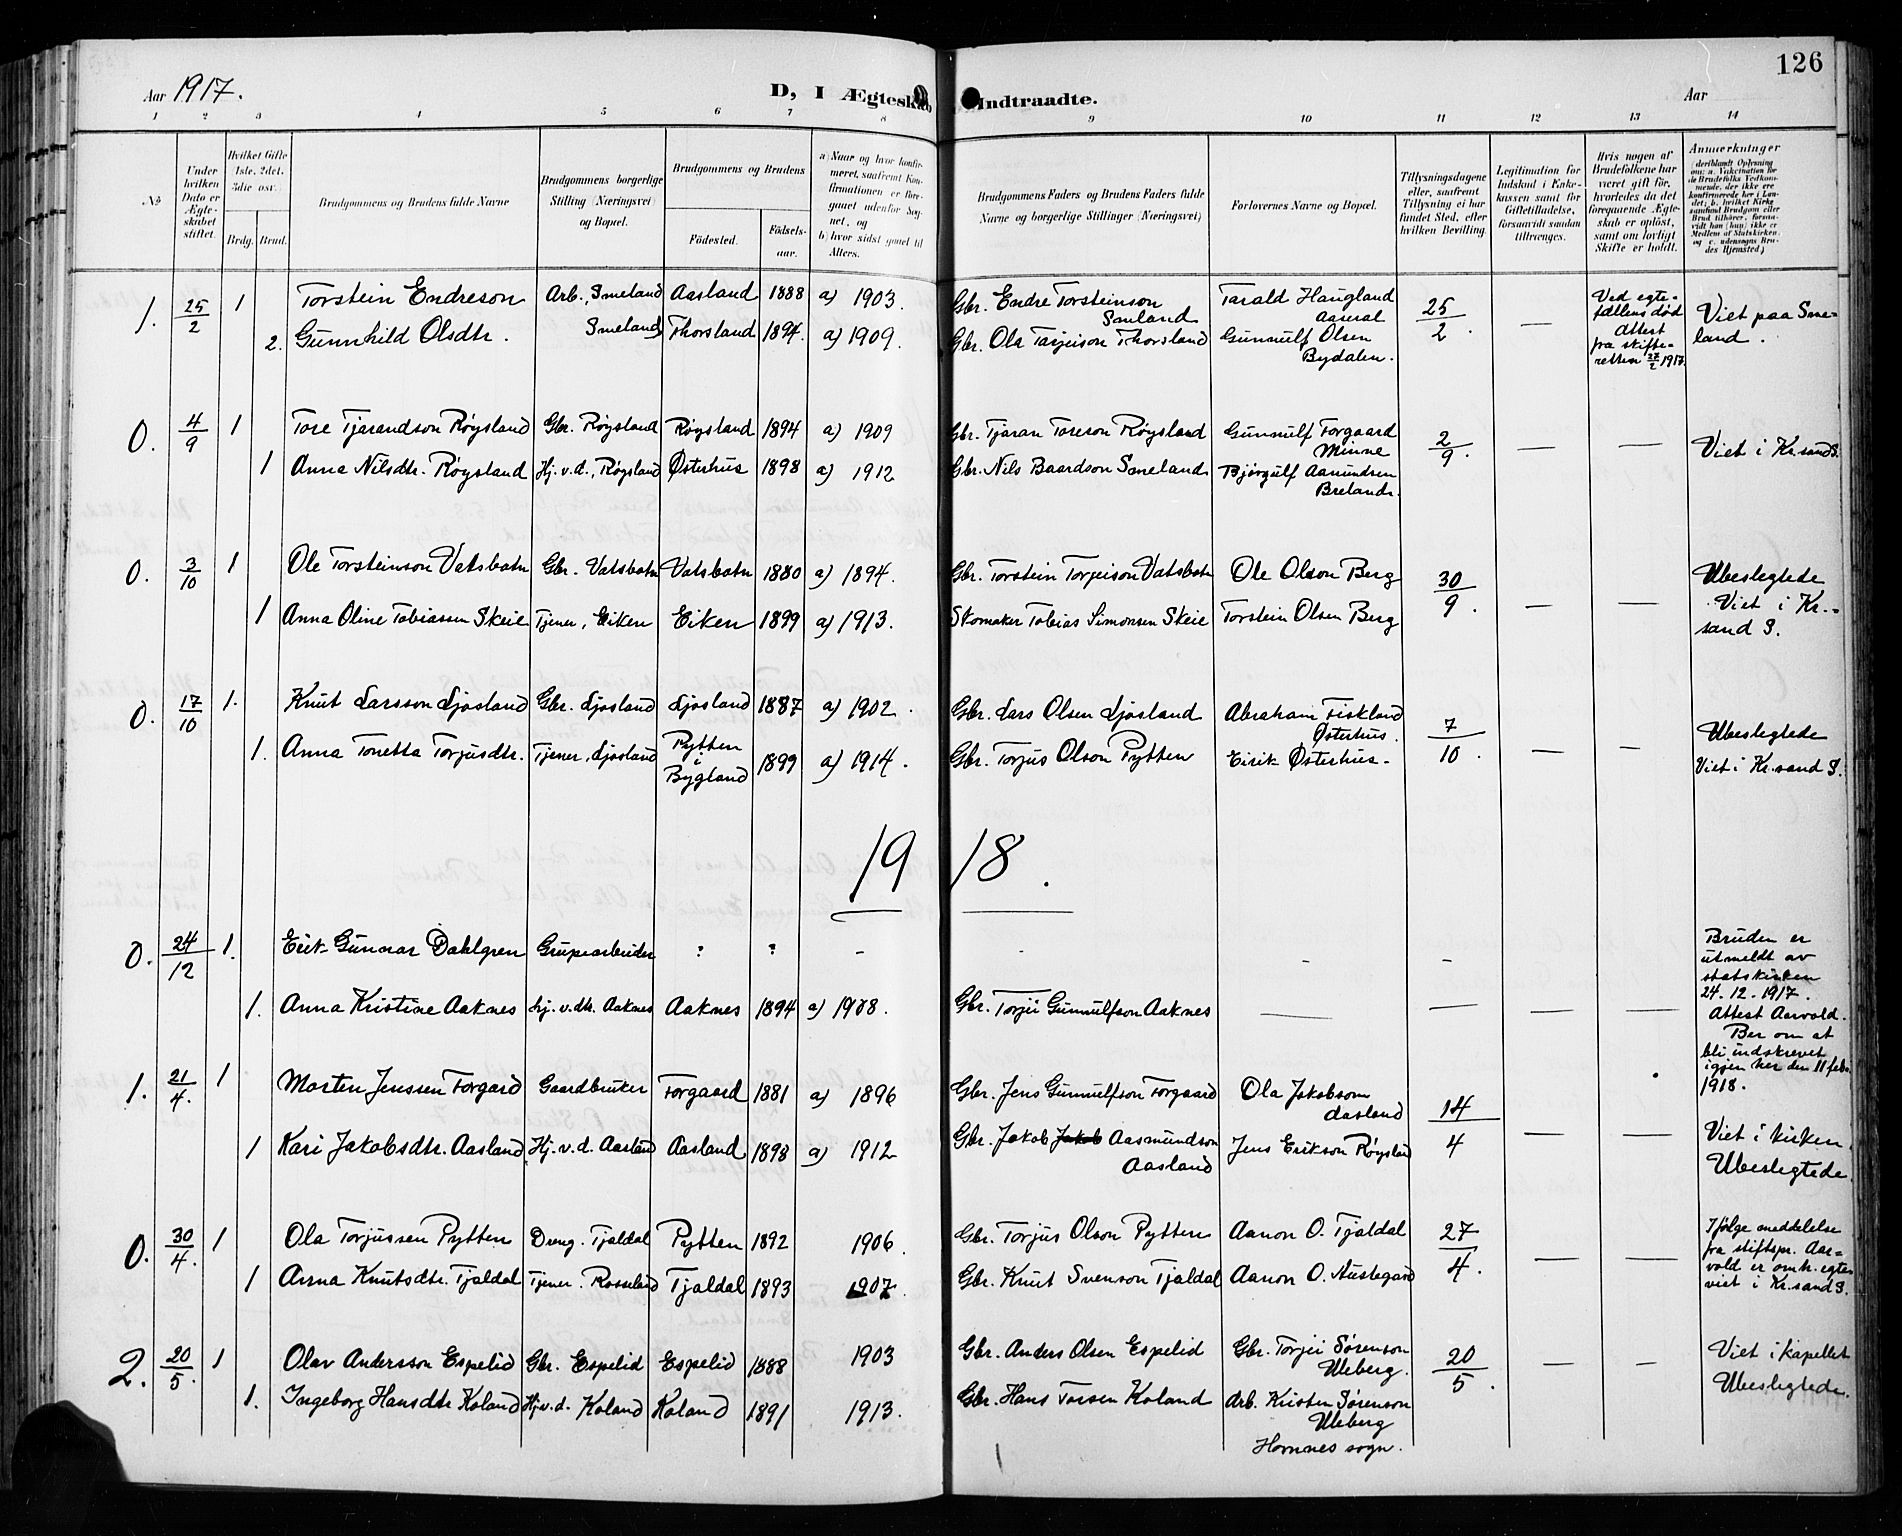 126
Aar 1917.
D, I Ægteskab Indtraadte.
Aar
1 2 3 4 5 6 7 8 9 10 11 12 13 14
No
Under hvilken Dato er Ægteskabet stiftet.
Hvilket Gifte 1ste, 2det, 3die osv.
Brdg. Brud.
Brudgommens og Brudens fulde Navne
Brudgommens borgerlige Stilling (Næringsvei) og Bopæl.
Brudgommens og Brudens
Fødested.
Fødselsaar.
a) Naar og hvor konfirmeret, saafremt Konfirmationen er foregaaet udenfor Sognet, og
b) hvor sidst gaaet til Alters.
Brudgommens Faders og Brudens Faders fulde Navne og borgerlige Stillinger (Næringsvei)
Forlovernes Navne og Bopæl.
Tillysningsdagene eller, saafremt Tillysning ei har fundet Sted, efter hvilken Bevilling.
Legitimation for Indskud i Enkekassen samt for Giftetilladelse, forsaavidt saadan tiltrænges.
Hvis nogen af Brudefolkene har været gift før, hvorledes da det foregaaende Ægteskab er opløst, samt om lovligt Skifte er holdt.
Anmærkninger (deriblandt Oplysning om: a. Vakcination for de Brudefolks Vedkommende, der ikke ere konfirmerede her i Landet; b. hvilket Kirkesamfund Brudgom eller Brud tilhører, forsaavidt han (hun) ikke er Medlem af Statskirken, og c. udensogns Brudes Hjemsted.)
1. 25/2 1 Torstein Endreson Arb., Smeland Aasland 1888 a) 1903. Gbr. Endre Torsteinson Smland Tarald Haugland Aaseral 25/2 — Ved egtefællens død Attest fra skifteretten 27/2 1917. Viet paa Smeland.
2. Gunnhild Olsdtr. Smeland Thorsland 1894. a) 1909. Gbr. Ola Tarjeison Thorsland Gunnulf Olsen Bydalen.
0. 4/9 1 Tore Tjarandson Røysland Gbr. Røysland Røysland 1894 a) 1909 Gbr. Tjaran Toreson Røysland Gunnulf Forgaard Minne 2/9. — — Viet i Kr.sand S.
1 Anna Nilsdtr. Røysland Hj. v. d., Røysland Østerhus 1898 a) 1912 Gbr. Nils Baardson Smeland Bjørgulf Aanundsen Breland.
0. 3/10 1 Ole Torsteinson Vatsbotn Gbr. Vatsbotn Vatsbotn 1880 a) 1894. Gbr. Torstein Torjeison Vatsbotn Ole Olson Berg 30/9. — — Ubeslegtede Viet i Kr.sand S.
1 Anna Oline Tobiassen Skeie Tjener, Eiken Eiken 1899 a) 1913. Skomaker Tobias Simonsen Skeie Torstein Olsen Berg
0. 17/10 1. Knut Larsson Ljosland Gbr. Ljosland Ljosland 1887 a) 1902. Gbr. Lars Olsen Ljosland Abraham Fiskland Østerhus. 7/10. — — Ubeslegtede Viet i Kr.sand S.
1. Anna Tonetta Torjusdtr. Tjener, Ljosland Pytten i Bygland 1899 a) 1914. Gbr. Torjus Olson Pytten Eirik Østerhus.
1918.
0. 24/12 1. Erik Gunnar Dahlgren Grupearbeider : : - - - - Bruden er utmeldt av statskirken 24-12-1917. Attest Aarvold. Ber om at bli indskrevet igjen her den 11 feb. 1918.
1. Anna Kristine Aaknes hj. v. dtr. Aaknes Aaknes 1894 a) 1908. Gbr. Torjei Gunnulfson Aaknes — — — —
1. 21/4. 1 Morten Jenssen Forgard Gaardbruker Forgaard 1881 a) 1896 Gbr. Jens Gunnulfson Forgaard Ola Jakobson Aasland 14/4 — — Viet i kirken. Ubeslegtede.
1 Kari Jakobsdtr. Aasland Hj. v. d. Aasland Aasland 1898 a) 1912 Gbr. Jakob Jakob Aasmundson Aasland Jens Erikson Røysland
0. 30/4. 1 Ola Torjussen Pytten Dreng. Tjaldal Pytten 1892 1906. Gbr. Torjus Olson Pytten Aanon O. Tjaldal 27/4. — — Ifølge meddelelse fra stiftspr. Aarvold er omh. egtep. viet i Kr.sand S.
1 Anna Knutsdtr. Tjaldal Tjener. Rosseland Tjaldal 1893 1907. Gbr. Knut Svenson Tjaldal Aanon O. Austegard
2. 20/5. 1 Olav Andersson Espelid Gbr. Espelid Espelid 1888 1903 Gbr. Anders Olsen Espelid Gbr. Torjei Sørenson Uleberg. 20/5. — — Viet i kapellet Ubeslegtede.
1. Ingeborg Hansdtr Koland Hj. v. d. Koland Koland 1891 1913. Gbr. Hans Torsen Koland Arb. Kristen Sørenson Uleberg Hornnes sogn.